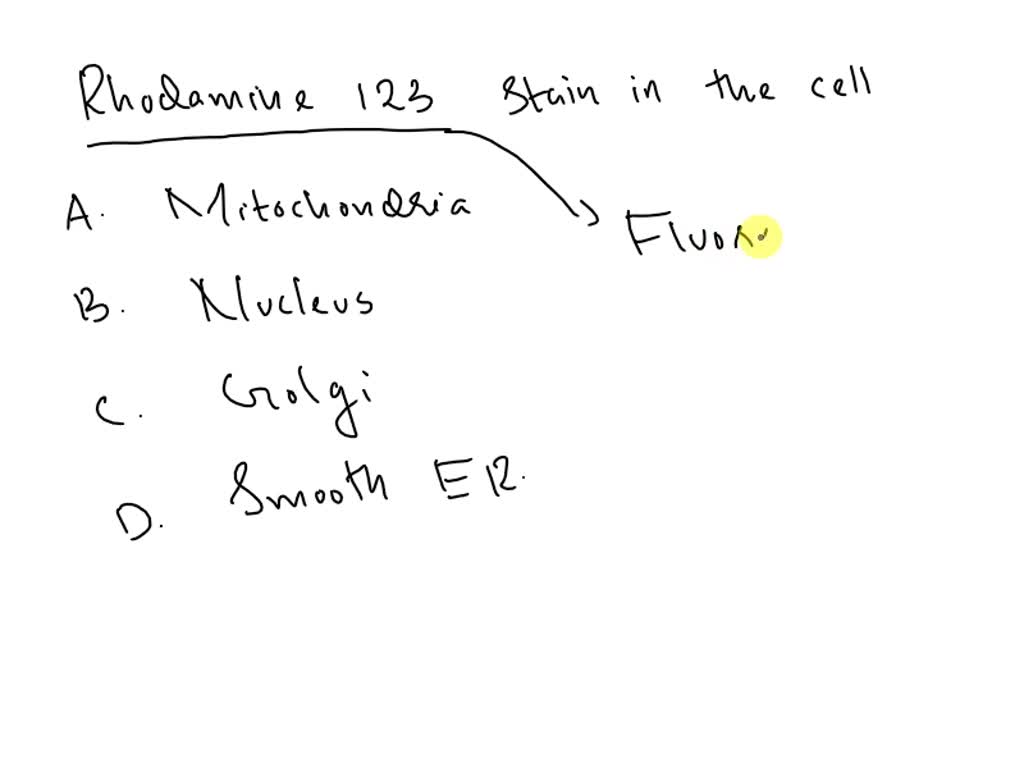 Rhodamine 123 stain in the cell
A. Mitochondria
Fluor
B. Nucleus
C. Golgi
D. Smooth ER.